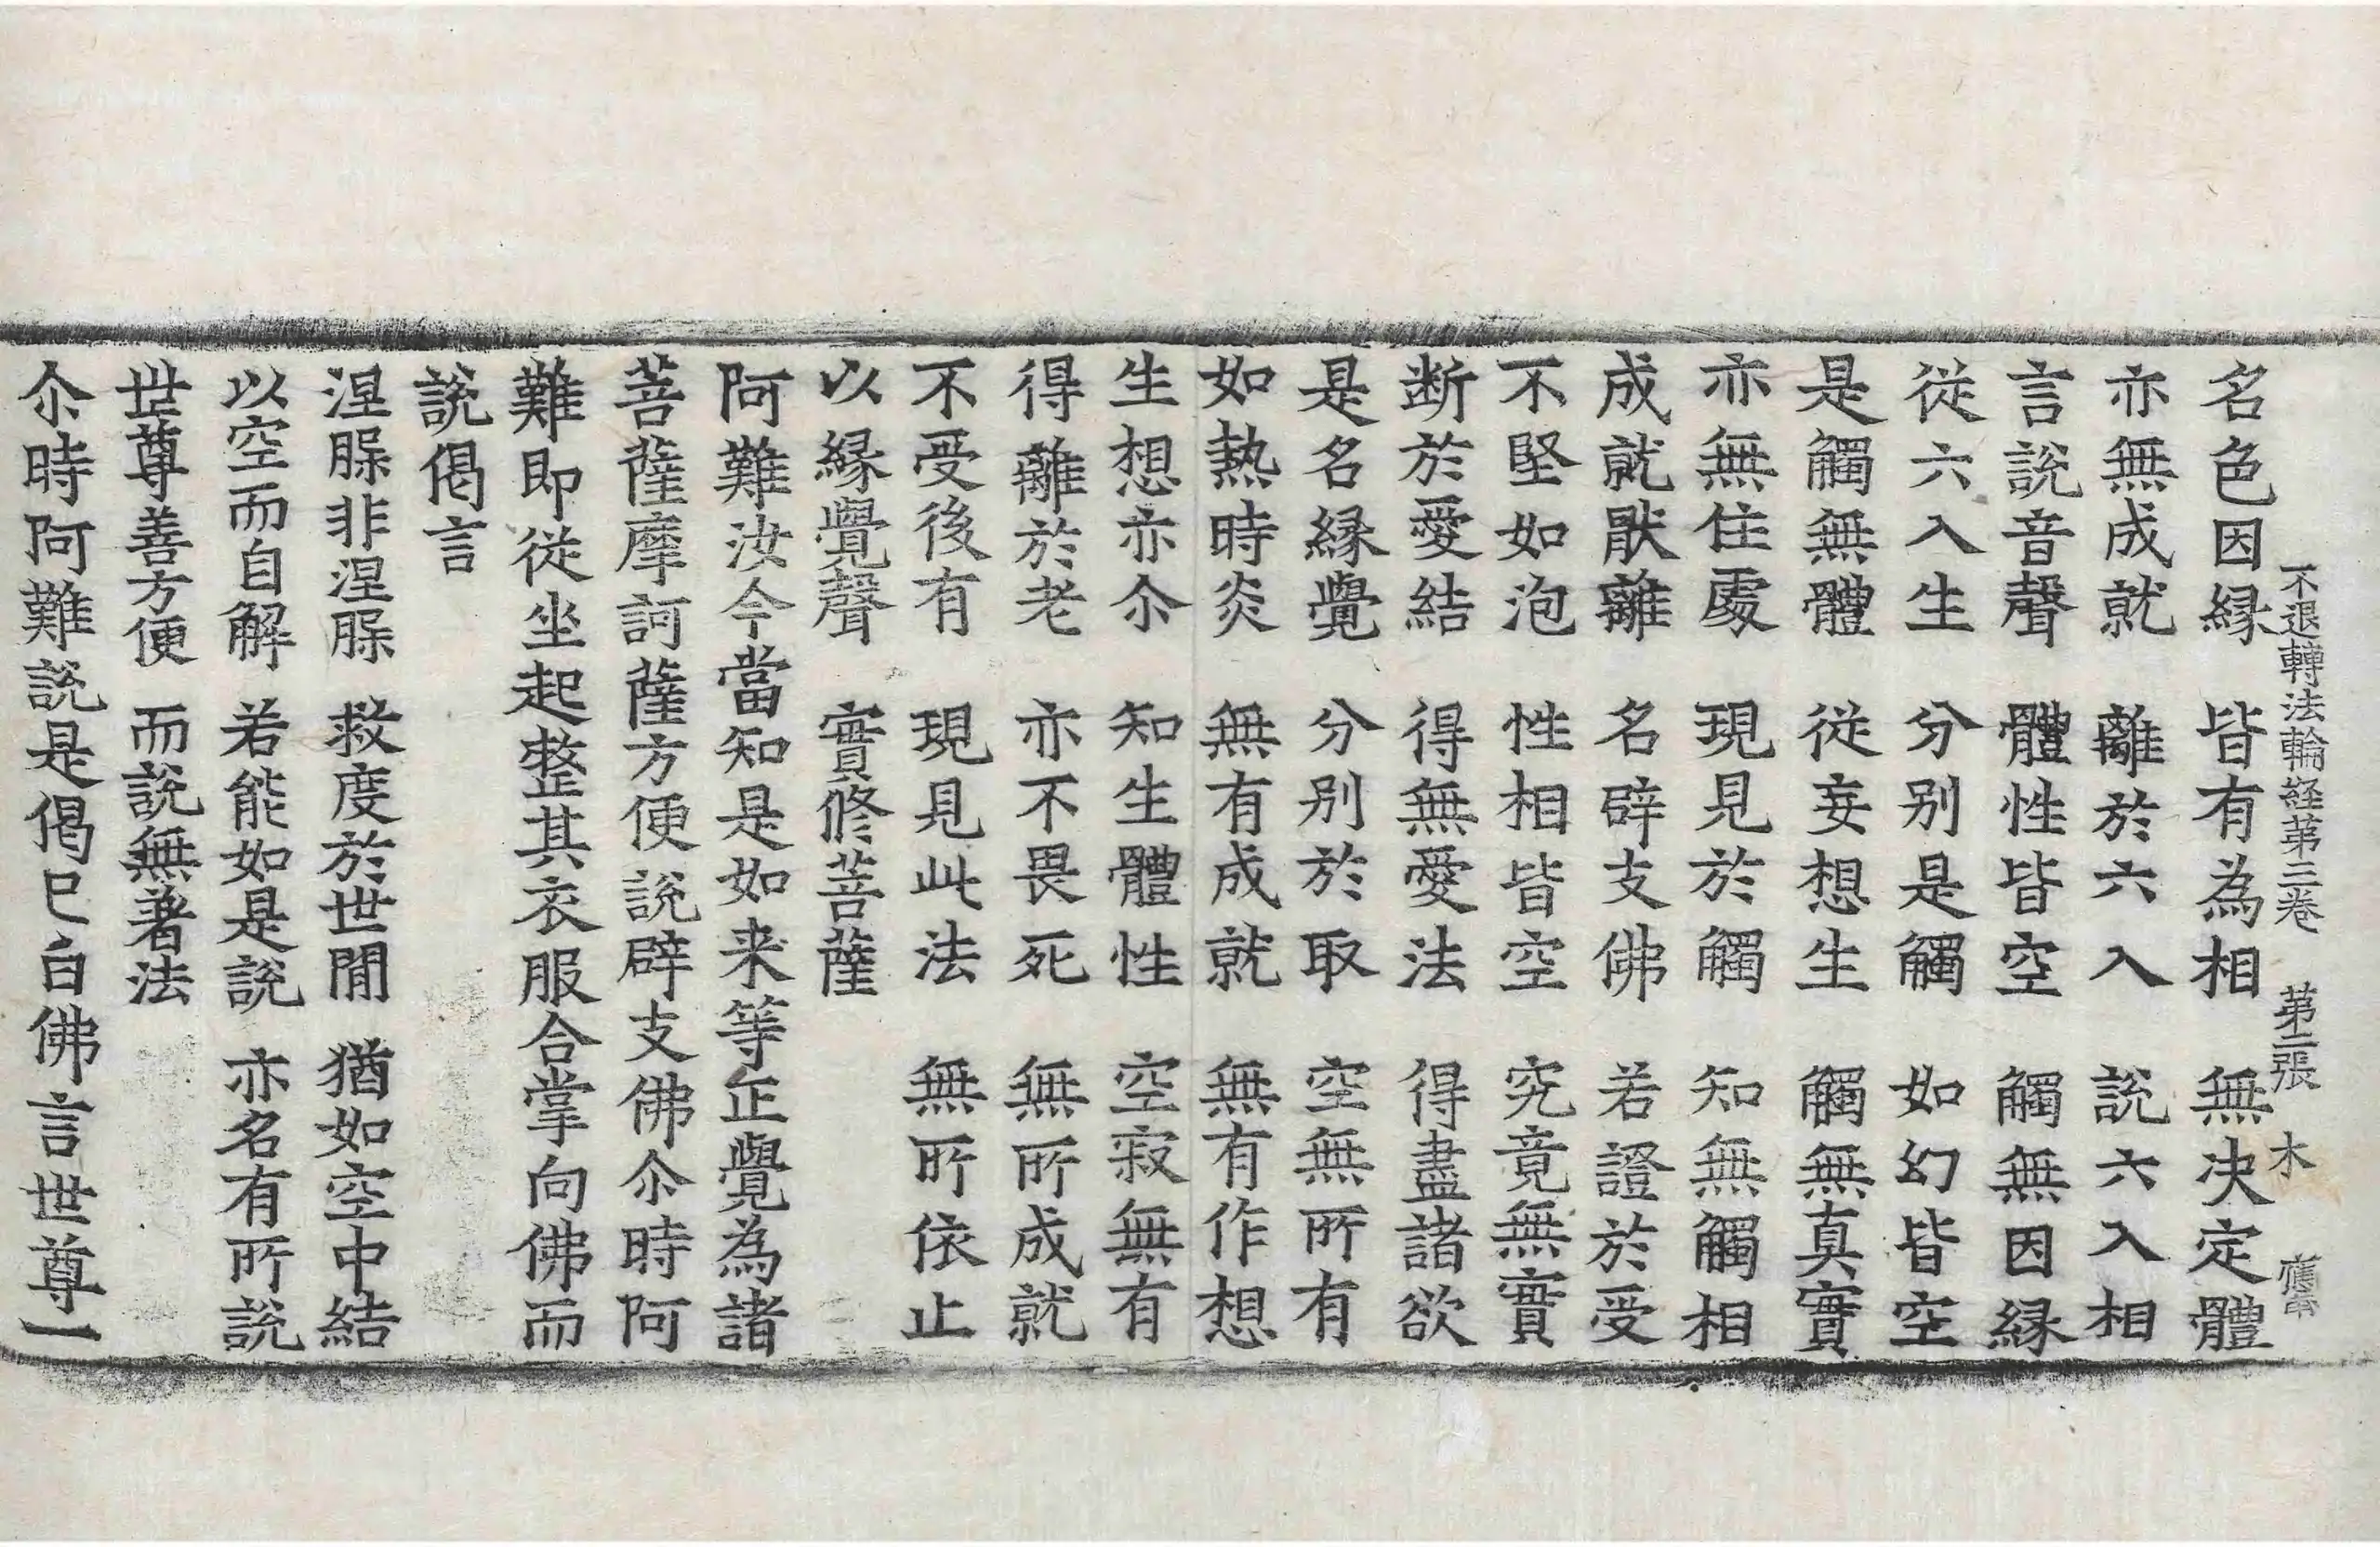 不退轉法輪経苐三卷 苐二張 木
名色因縁 皆有為相 無决定體
亦無成就 離於六入 說六入相
言說音聲 體性皆空 觸無因縁
從六入生 分别是觸 如幻皆空
是觸無體 從妄想生 觸無真實
亦無住處 現見於觸 知無觸相
成就猒離 名辟支佛 若證於受
不堅如泡 性相皆空 究竟無實
断於愛結 得無愛法 得盡諸欲
是名縁覺 分别於取 空無所有
如熱時炎 無有成就 無有作想
生想亦尒 知生體性 空寂無有
得離於老 亦不畏死 無所成就
不受後有 現見此法 無所依止
以縁覺聲 實修菩薩
阿難汝今當知是如来等正覺為諸
菩薩摩訶薩方便說辟支佛尒時阿
難即從坐起整其衣服合掌向佛而
說偈言
涅槃非涅槃 救度於世閒 猶如空中結
以空而自解 若能如是說 亦名有所說
世尊善方便 而說無著法
尒時阿難說是偈已白佛言世尊一